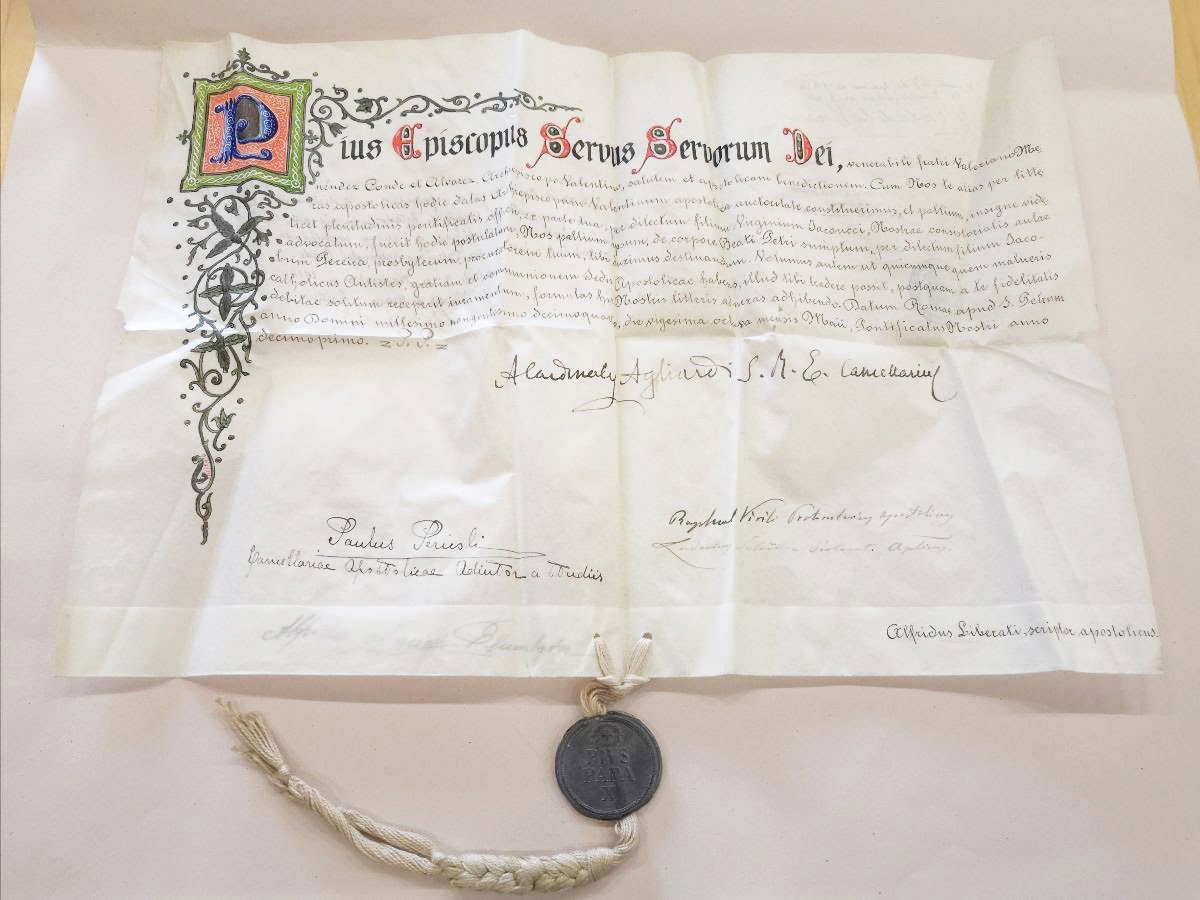 Pius Episcopus Servus Servorum Dei, venerabili fratri Valeriano Me
néndez Conde et Alvarez, Archiepiscopo Valentino, salutem et apostolicam benedictionem. Cum Nos te alias per litte
ras apostolicas hodie datas Archiepiscopum Valentinum apostolica auctoritate constituerimus, et pallium, insigne vide
licet plenitudinis pontificalis officii, ex parte tua, per dilectum filium Virginium Jacoucci, Nostrae consistorialis aulae
advocatum, fuerit hodie postulatum, Nos pallium ipsum, de corpore Beati Petri sumptum, per dilectum filium Jaco-
obum Pereira, presbyterum, procuratorem tuum, tibi duximus destinandum. Volumus autem ut quicumque quem malueris
catholicus Antistes, gratiam et communionem Sedis Apostolicae habens, illud tibi tradere possit, postquam a te fidelitatis
debitae solitum receperit iuramentum, formulas his Nostris litteris adhibendo. Datum Romae, apud S. Petrum
anno Domini millesimo nongentesimo decimoquarto, die vigesima octava mensis Maii, Pontificatus Nostri anno
decimoprimo.
A Cardinalis Agliardi S. R. E. Cancellarius
Raphael Virili Apostolicus
Paulus Pericoli
Cancellariae Apostolicae Adiutor a studiis
Alfridus Liberati, scriptor apostolicus.
PIVS
PAPA
X